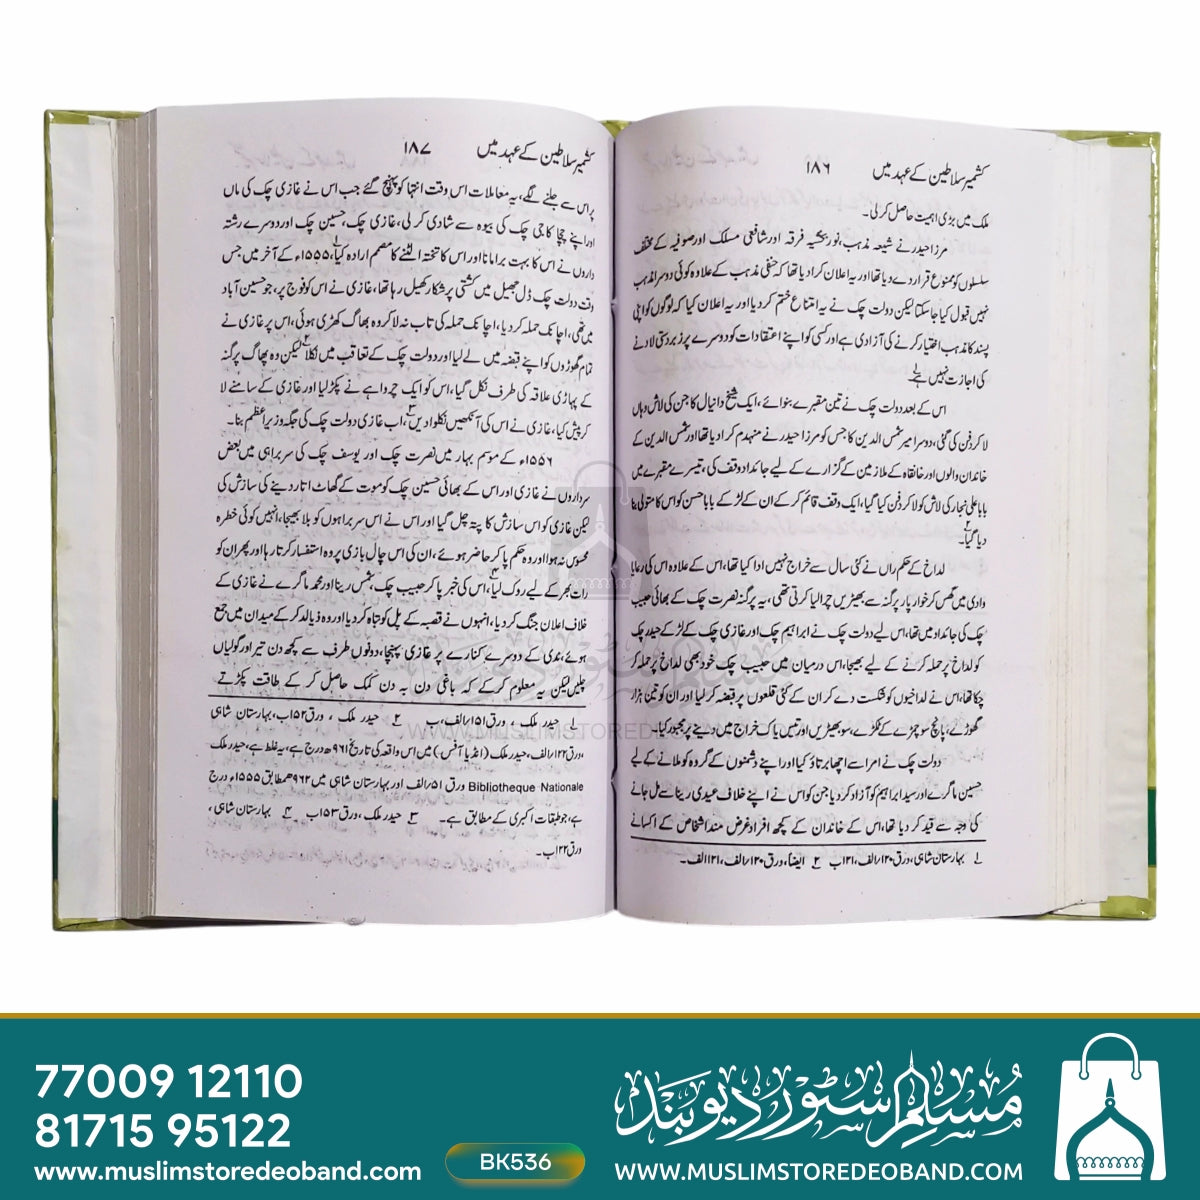 کشمیر سلاطین کے عہد میں ۱۸۶
ملک میں بڑی اہمیت حاصل کر لی۔
مرزا حیدر نے شیعہ مذہب، نوربخشیہ فرقہ اور شافعی مسلک اور صوفیہ کے مختلف
سلسلوں کو ممنوع قرار دے دیا تھا اور یہ اعلان کرا دیا تھا کہ حنفی مذہب کے علاوہ کوئی دوسرا مذہب
نہیں قبول کیا جا سکتا لیکن دولت چک نے یہ امتناع ختم کر دیا اور یہ اعلان کیا کہ لوگوں کو اپنی
پسند کا مذہب اختیار کرنے کی آزادی ہے اور کسی کو اپنے اعتقادات کو دوسرے پر زبردستی لادنے
کی اجازت نہیں ہے۱؎
اس کے بعد دولت چک نے تین مقبرے بنوائے، ایک شیخ دانیال کا جن کی لاش وہاں
لا کر دفن کی گئی، دوسرا میر شمس الدین کا جس کو مرزا حیدر نے منہدم کرا دیا تھا اور شمس الدین کے
خاندان والوں اور خانقاہ کے ملازمین کے گزارے کے لیے جائداد وقف کی، تیسرے مقبرے میں
بابا علی نجار کی لاش کو لا کر دفن کیا گیا، ایک وقف قائم کر کے ان کے لڑکے بابا حسن کو اس کا متولی بنا
دیا گیا۲؎۔
لداخ کے حکمراں نے کئی سال سے خراج نہیں ادا کیا تھا، اس کے علاوہ اس کی رعایا
وادی میں گھس کر خوار پار پرگنہ سے بھیڑیں چرا لیا کرتی تھی، یہ پرگنہ نصرت چک کے بھائی حبیب
چک کی جائداد میں تھا، اس لیے دولت چک نے ابراہیم چک اور غازی چک کے لڑکے حیدر چک
کو لداخ پر حملہ کرنے کے لیے بھیجا، اس درمیان میں حبیب چک خود بھی لداخ پر حملہ کر
چکا تھا، اس نے لداخیوں کو شکست دے کر ان کے کئی قلعوں پر قبضہ کر لیا اور ان کو تین ہزار
گھوڑے، پانچ سو چڑے کے ٹکڑے، سو بھیڑیں اور تیس یاک خراج میں دینے پر مجبور کیا۔
دولت چک نے امرا سے اچھا برتاؤ کیا اور اپنے دشمنوں کے گروہ کو ملانے کے لیے
حسین ماگرے اور سید ابراہیم کو آزاد کر دیا جن کو اس نے اپنے خلاف عیدی رینا سے مل جانے
کی وجہ سے قید کر دیا تھا، اس کے خاندان کے کچھ افراد غرض مند اشخاص کے اکسانے
۱؎ بہارستان شاہی، ورق ۱۲۰؍الف، ۱۲۱ب ۲؎ ایضاً، ورق ۱۲۰؍الف، ۱۲۱؍الف۔
کشمیر سلاطین کے عہد میں ۱۸۷
پر اس سے جلنے لگے، یہ معاملات اس وقت انتہا کو پہنچ گئے جب اس نے غازی چک کی ماں
اور اپنے چچا کاجی چک کی بیوہ سے شادی کر لی، غازی چک، حسین چک اور دوسرے رشتہ
داروں نے اس کا بہت برا مانا اور اس کا تختہ الٹنے کا مصمم ارادہ کیا۱؎، ۱۵۵۵ء کے آخر میں جس
وقت دولت چک ڈل جھیل میں کشتی پر شکار کھیل رہا تھا، غازی نے اس کو فوج پر، جو حسین آباد
میں تھی، اچانک حملہ کر دیا، اچانک حملہ کی تاب نہ لا کر وہ بھاگ کھڑی ہوئی، اس پر غازی نے
تمام گھوڑوں کو اپنے قبضہ میں لے لیا اور دولت چک کے تعاقب میں نکلا۲؎ لیکن وہ بھاگ پرگنہ
کے پہاڑی علاقہ کی طرف نکل گیا، اس کو ایک چرواہے نے پکڑ لیا اور غازی کے سامنے لا
کر پیش کیا، غازی نے اس کی آنکھیں نکلوا دیں۳؎، اب غازی دولت چک کی جگہ وزیراعظم بنا۔
۱۵۵۶ء کے موسم بہار میں نصرت چک اور یوسف چک کی سربراہی میں بعض
سرداروں نے غازی اور اس کے بھائی حسین چک کو موت کے گھاٹ اتار دینے کی سازش کی
لیکن غازی کو اس سازش کا پتہ چل گیا اور اس نے اس سربراہوں کو بلا بھیجا، انہیں کوئی خطرہ
محسوس نہ ہوا اور وہ حکم پا کر حاضر ہوئے، ان کی اس چال بازی پر وہ استفسار کرتا رہا اور پھر ان کو
رات بھر کے لیے روک لیا۴؎، اس کی خبر پا کر حبیب چک، شمس رینا اور محمد ماگرے نے غازی کے
خلاف اعلان جنگ کر دیا، انہوں نے قصبہ کے پل کو تباہ کر دیا اور وہ ذیالدگر کے میدان میں جمع
ہوئے، ندی کے دوسرے کنارے پر غازی پہنچا، دونوں طرف سے کچھ دن تیر اور گولیاں
چلیں لیکن یہ معلوم کر کے کہ باغی دن بہ دن کمک حاصل کر کے طاقت پکڑتے
۱؎ حیدر ملک، ورق ۱۵۱؍الف، ب ۲؎ حیدر ملک، ورق ۱۵۲ب، بہارستان شاہی
،ورق ۱۲۲؍الف، حیدر ملک (انڈیا آفس) میں اس واقعہ کی تاریخ ۹۶۱ھ درج ہے، یہ غلط ہے، حیدر ملک
Bibliotheque Nationale ورق ۵۱؍الف اور بہارستان شاہی میں ۹۶۲ھ مطابق ۱۵۵۵ء درج
ہے، جو طبقات اکبری کے مطابق ہے۔ ۳؎ حیدر ملک، ورق ۱۵۳ب ۴؎ بہارستان شاہی،
ورق ۱۲۲ب۔
WWW.MUSLIMSTOREDEOBAND.COM
77009 12110
81715 95122
www.muslimstoredeoband.com
BK536
مسلم سٹور دیوبند
WWW.MUSLIMSTOREDEOBAND.COM